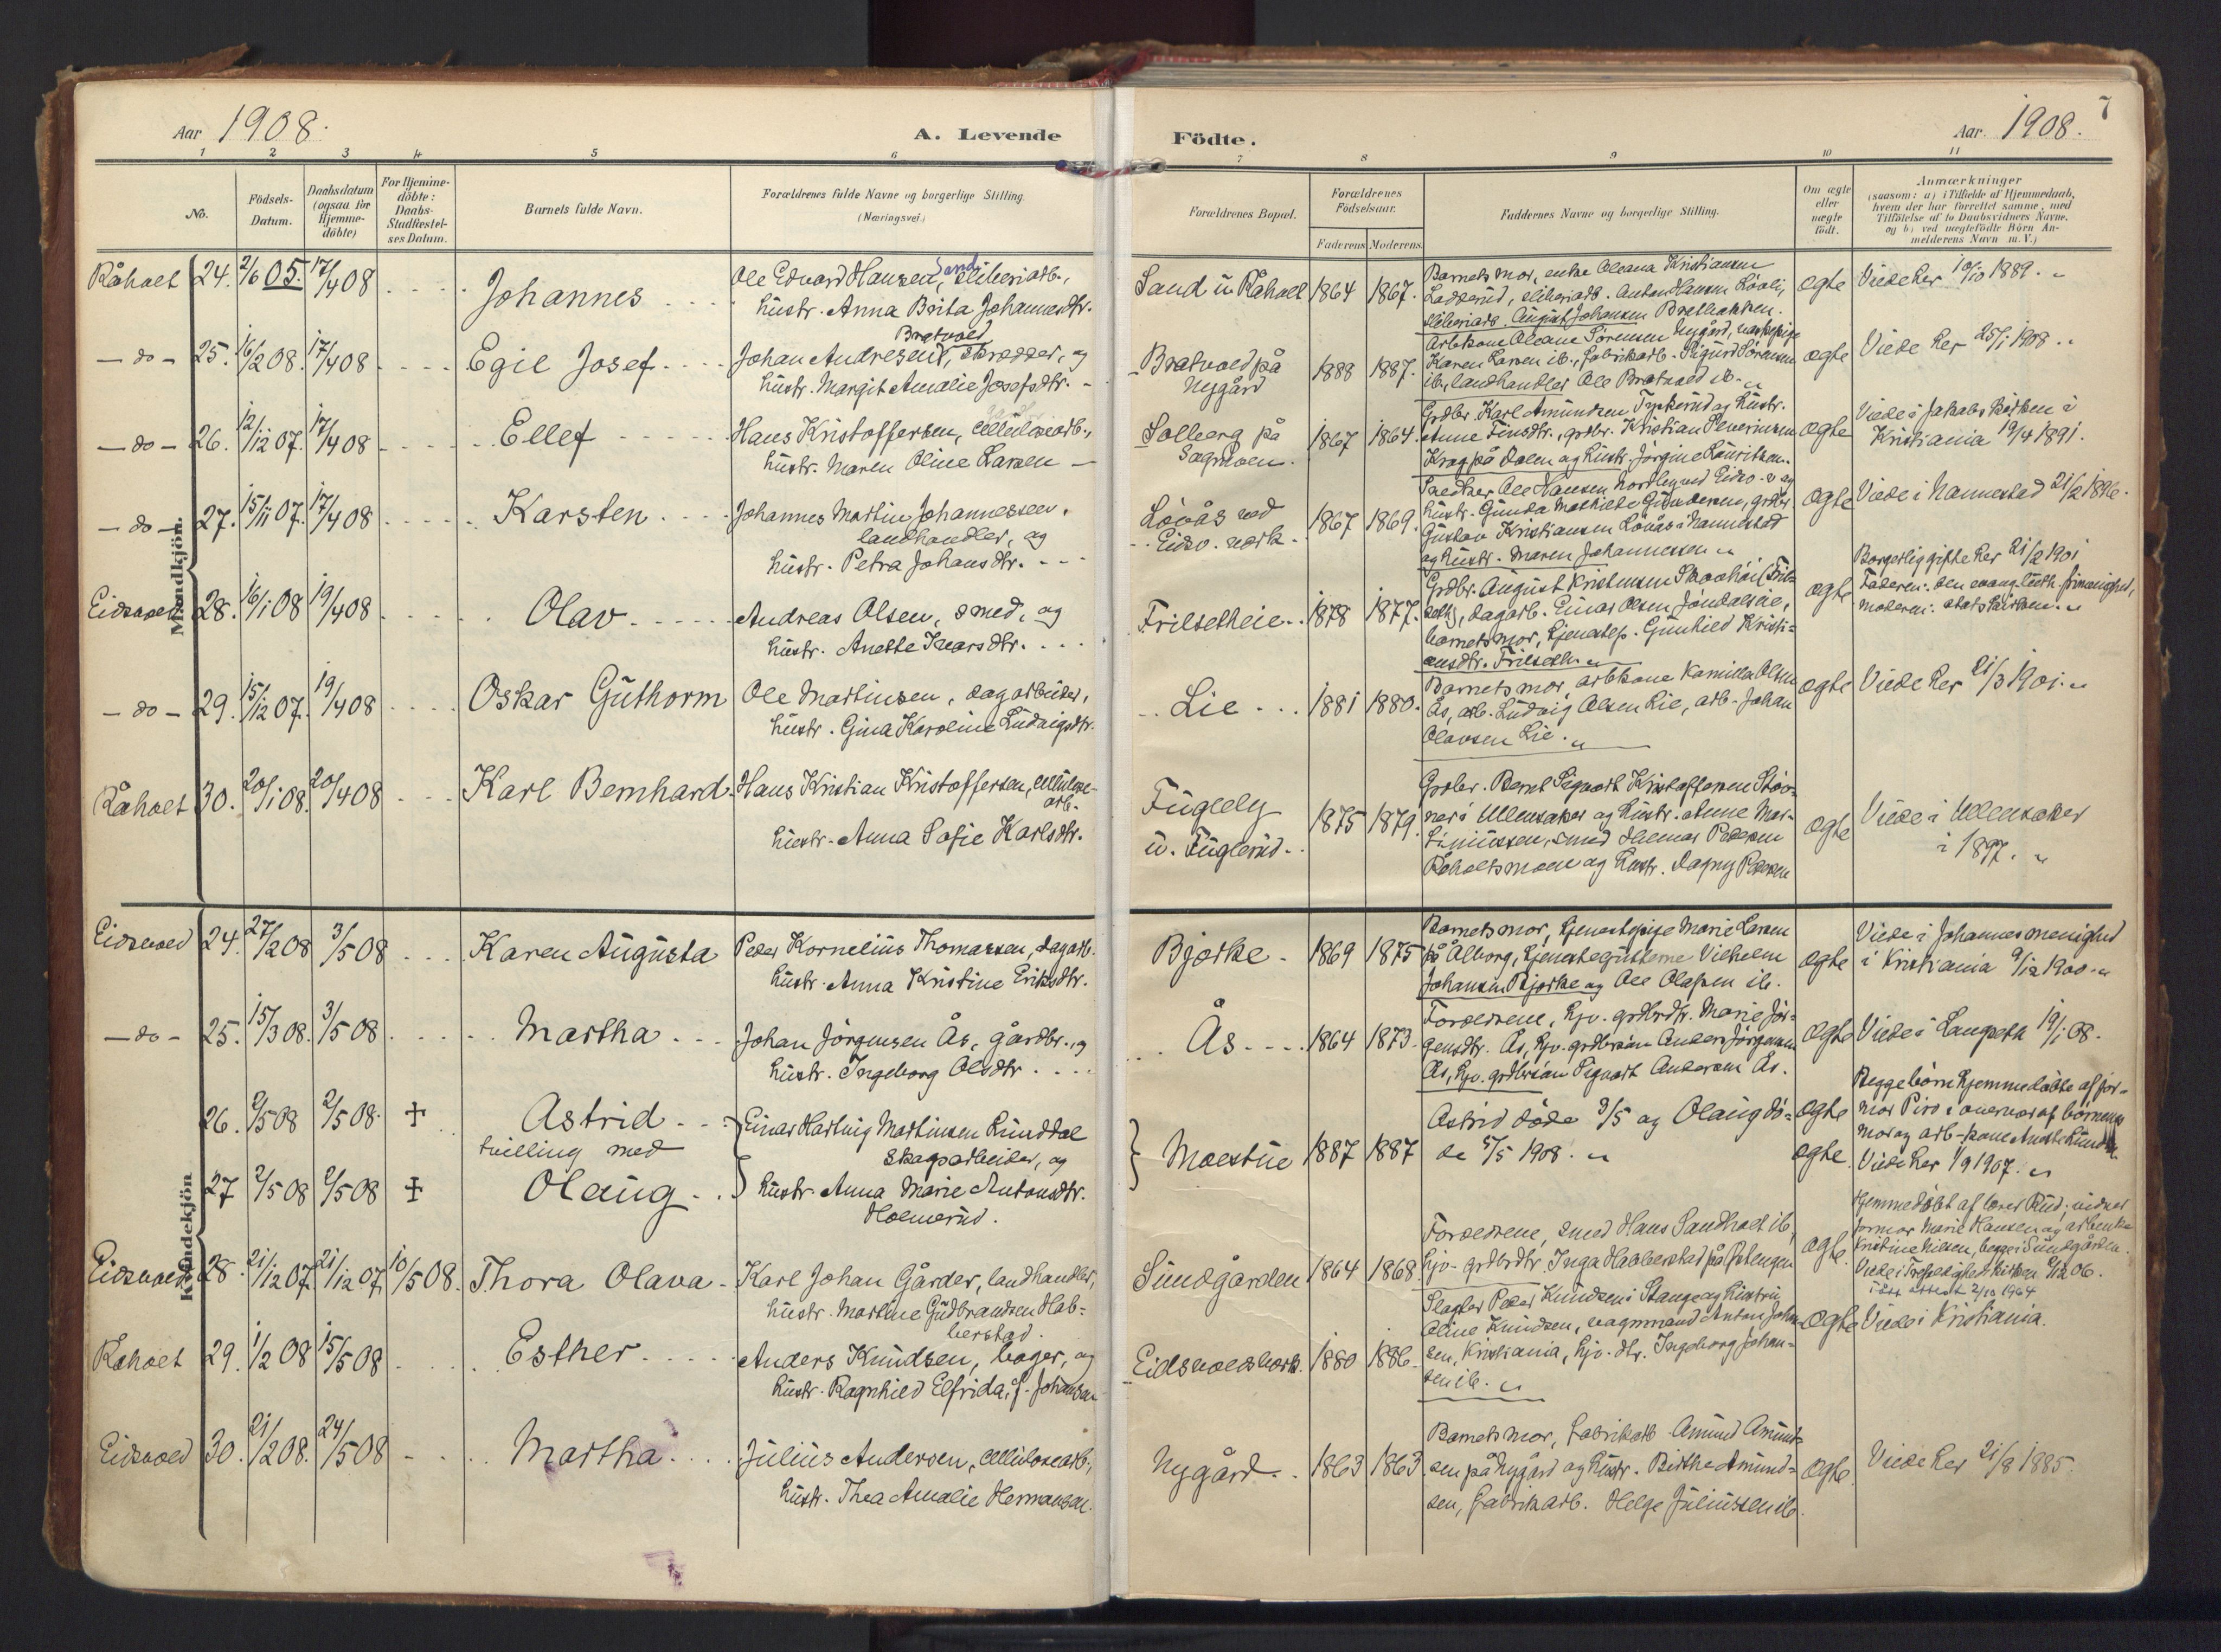 Aar 1908.
A. Levende
Födte.
Aar. 1908.
7
1 2 3 4 5 6 7 8 9 10 11
No.
Födsels-
Datum.
Daabsdatum
(ogsaa for
Hjemme-
döbte)
For Hjemme-
döbte:
Daabs-
Stadfæstel-
ses Datum.
Barnets fulde Navn.
Forældrenes fulde Navne og borgerlige Stilling
(Næringsvei.)
Forældrenes Bopæl.
Forældrenes
Födselsaar.
Faderens Moderens
Faddernes Navne og borgerlige Stilling.
Om ægte
eller
uægte
födt.
Anmærkninger
(saasom: a) i Tilfælde af Hjemmedaab,
hvem der har forrettet samme, med
Tilföielse af to Daabsvidners Navne.
og b) ved uægtefödte Börn An-
melderens Navn m. V.)
Mandkjön.
Råholt 24. 2/6 05. 17/4 08 Johannes
Ole Edvard Hansen, Sand sliberiarb.,
hustr. Anna Brita Johannesdtr.
Sand u Råholt 1864 1867.
Barnets mor, enke Oleana Kristiansen
Ladderud, sliberiarb. Anton Hansen
sliberiarb. August Johansen Brætbakken.
ægte Viede her 10/10 1889.
- do - 25. 16/2 08. 17/4 08 Egil Josef
Bratvold
Johan Andresen, skrædder, og
hustr. Margit Amalie Josefsdtr.
Bratvold på
Nygård
1888 1887.
Arbkone Oleane Sørensen Nygård,
Karen Larsen ib., fabrikarb. Sigurd Sørensen
ib., landhandler Ole Bratvold ib.
ægte Viede her 25/1 1908.
- do - 26. 12/12 07. 17/4 08 Ellef
Hans Kristoffersen, cellulosearb.,
hustr. Maren Oline Larsen
Solberg på
Sagmoen.
1867 1864.
Grdbr. Karl Amundsen og hustr.
Anne Finsdtr., grdbr. Kristian
Krog på Dalen og hustr. Jørgine Lauritsen.
ægte Viede i Jakobs kirken i
Kristiania 19/4 1891.
- do - 27. 15/11 07. 17/4 08 Karsten
Johannes Martin Johannessen,
landhandler, og
hustr. Petra Johansdtr.
Lövås ved
Eidsv. verk
1867 1869.
Snedker Ole Hansen Nordly ved Eidsv. v. og
hustr. Gunda Mathilde Gundersen, grdbr.
Gustav Kristiansen Lövås i Nannestad
og hustr. Maren Johannessen
ægte Viede i Nannestad 21/2 1896.
Eidsvold 28. 16/1 08 19/4 08 Olav
Andreas Olsen, smed, og
hustr. Anette Ivarsdtr.
Frilsetheie 1878 1877.
Grdbr. August Kristensen
dagarb. Einar Olsen Jöndalseie,
barnets mor, tjenestep. Gunhild Kristi-
ansdtr. Frilseth.
ægte Borgerlig gifte her 21/2 1901
Faderen: den evang. luth. frimenighed,
moderen: statskirken.
- do - 29. 15/12 07. 19/4 08 Oskar Guthorm
Ole Martinsen, dagarbeider,
hustr. Gina Karoline Ludvigsdtr.
Lie 1881 1880.
Barnets mor, arbkone Kamilla Olsen
Ås, arb. Ludvig Olsen Lie, arb. Johan
Olavsen Lie.
ægte Viede her 21/3 1901.
Råholt 30. 20/1 08. 20/4 08 Karl Bernhard
Hans Kristian Kristoffersen, cellulose-
arb.
hustr. Anna Sofie Karlsdtr.
Fuglely
u. Fuglerud.
1875 1879.
Grdbr. Bernt Sigvart Kristoffersen
i Ullensaker og hustr. Anne
smed Hjalmar Pedersen
Råholtsmoen og hustr. Dagny Pedersen
ægte Viede i Ullensaker
i 1897.
Kvindekjön
Eidsvold 24. 27/2 08 3/5 08 Karen Augusta
Peder Kornelius Thomassen, dagarb.
hustr. Anna Kristine Eriksdtr.
Bjørke 1869 1875
Barnets mor, tjenestepige Marie Larsen
på Ålborg, tjenestegutterne Vilhelm
Johansen Bjørke og Ole Olafsen ib.
ægte Viede i Johannes menighed
i Kristiania 9/12 1900.
- do - 25. 15/3 08. 3/5 08 Martha
Johan Jörgensen Ås, gårdbr., og
hustr. Ingeborg Olsdtr.
Ås 1864 1873.
Forældrene, hjv. grdbrdtr. Marie Jör-
gensdtr. Ås, hjv. grdbrsön Anders Jörgensen
Ås, hjv. grdbrsön Sigvart Andersen Ås.
ægte Viede i Langseth 19/1 08.
26. 2/5 08 2/5 08 + Astrid
tvilling med
Einar Hartvig Martinsen Lunddal
skogsarbeider, og
27 2/5 08 2/5 08 + Olaug
hustr. Anna Marie Antonsdtr.
Holmerud.
Moestue 1887 1887
Astrid döde 3/5 og Olaug dö-
de 5/5 1908.
ægte
ægte
Begge börn hjemmedöbte af jor-
mor Piro i overvær af börnenes
mor og arb-kone Anette
Viede her 1/9 1907.
Eidsvold 28. 21/12 07. 21/12 07 10/5 08. Thora Olava
Karl Johan Gårder, landhandler,
hustr. Martine Gudbrandsen Hab-
berstad.
Sundgården 1864 1868
Forældrene, smed Hans Sandholt ib.,
hjv. grdbrdtr. Inga Habberstad på
ægte. Hjemmedöbt af lærer Rud; vidner
jormor Marie Hansen og arbenke
Kristine Nilsen, begge i Sundgården.
Viede i Trefoldighedskirken 9/12 06.
2/10 1964
Råholt 29. 1/2 08 15/5 08 Esther
Anders Knudsen, bager, og
hustr. Ragnhild Elfrida, f. Johansen
Eidsvoldsverk. 1880 1886.
Slagter Peder Knudsen i Stange og hustru
Oline Knudsen, vognmand Anton Johan-
sen, Kristiania, hjv. dtr. Ingeborg Johan-
sen ib.
ægte Viede i Kristiania.
Eidsvold 30. 21/2 08. 24/5 08 Martha
Julius Andersen, cellulosearb.,
hustr. Thea Amalie Hermansen.
Nygård 1863 1863.
Barnets mor, fabrikarb. Amund Amund-
sen på Nygård og hustr. Birthe Amund-
sen, fabrikarb. Helge Juliussen ib.
ægte. Viede her 21/8 1885.